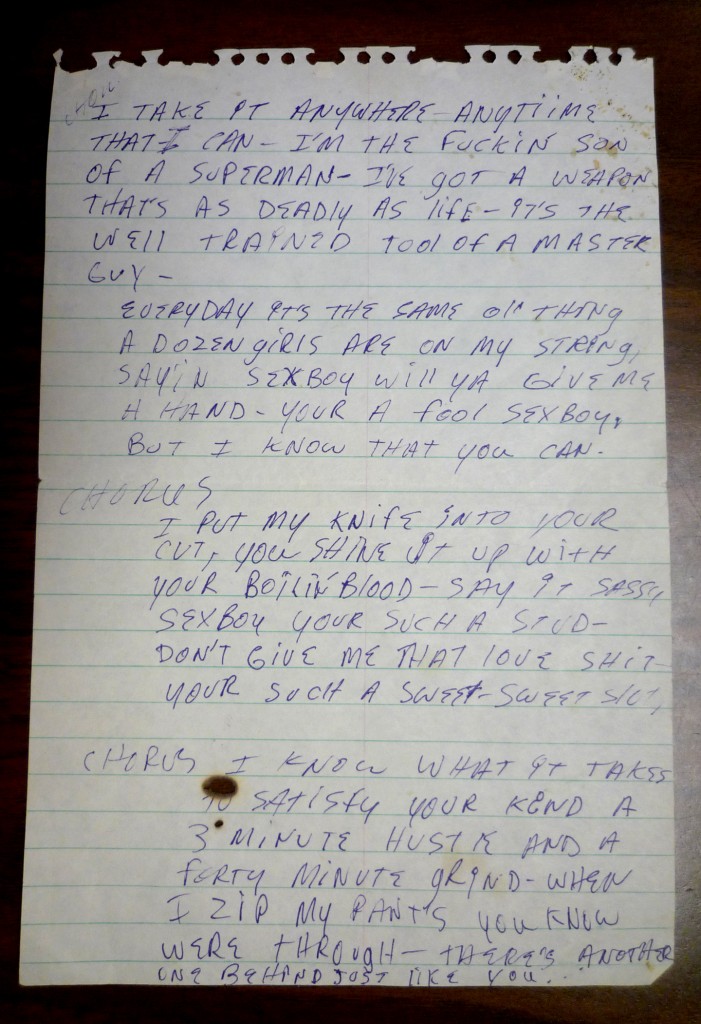 I TAKE IT ANYWHERE-ANYTIIME
THAT I CAN- I'M THE FUCKIN SON
OF A SUPERMAN- I'VE GOT A WEAPON
THAT'S AS DEADLY AS LIFE- IT'S THE
WELL TRAINED TOOL OF A MASTER
GUY-
EVERYDAY IT'S THE SAME OL' THING
A DOZEN GIRLS ARE ON MY STRING,
SAY'IN SEXBOY WILL YA GIVE ME
A HAND- YOUR A FOOL SEXBOY,
BUT I KNOW THAT YOU CAN.
CHORUS
I PUT MY KNIFE INTO YOUR
CUT, YOU SHINE IT UP WITH
YOUR BOILIN BLOOD- SAY IT SASSY
SEXBOY YOUR SUCH A STUD-
DON'T GIVE ME THAT LOVE SHIT-
YOUR SUCH A SWEET-SWEET SLUT,
CHORUS I KNOW WHAT IT TAKES
TO SATISFY YOUR KIND A
3 MINUTE HUSTLE AND A
FORTY MINUTE GRIND- WHEN
I ZIP MY PANTS YOU KNOW
WERE THROUGH- THERE'S ANOTHER
ONE BEHIND JUST LIKE YOU...